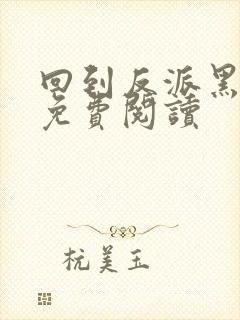 回到反派黑
免費閱讀
杭美玉